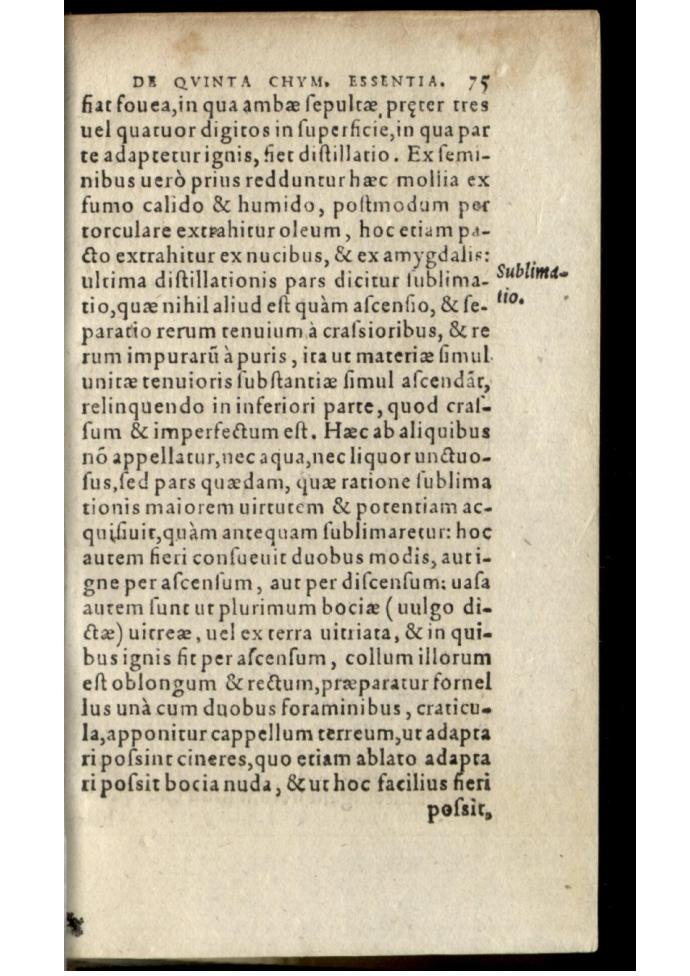 DE QVINTA CHYM. ESSENTIA. 75
fiat fouea,in qua ambæ ſepultæ, pręter tres
uel quatuor digitos in ſuperficie,in qua par
te adaptetur ignis, fiet diſtillatio. Ex ſemi-
nibus uerò prius redduntur hæc mollia ex
fumo calido & humido, poſtmodum per
torculare extrahitur oleum, hoc etiam pa-
cto extrahitur ex nucibus, & ex amygdalis:
ultima diſtillationis pars dicitur ſublima-
Sublima-
tio,quæ nihil aliud eſt quàm aſcenſio, & ſe-
tio.
paratio rerum tenuium à craſsioribus, & re
rum impurarū à puris, ita ut materiæ ſimul
unitæ tenuioris ſubſtantiæ ſimul aſcendāt,
relinquendo in inferiori parte, quod craſ-
ſum & imperfectum eſt. Hæc ab aliquibus
nō appellatur,nec aqua,nec liquor unctuo-
ſus,ſed pars quædam, quæ ratione ſublima
tionis maiorem uirtutem & potentiam ac-
quiſiuit,quàm antequam ſublimaretur: hoc
autem fieri conſueuit duobus modis, aut i-
gne per aſcenſum, aut per diſcenſum: uaſa
autem ſunt ut plurimum bociæ (uulgo di-
ctæ) uitreæ, uel ex terra uitriata, & in qui-
bus ignis fit per aſcenſum, collum illorum
eſt oblongum & rectum,præparatur fornel
lus unà cum duobus foraminibus, craticu-
la,apponitur cappellum terreum,ut adapta
ri poſsint cineres,quo etiam ablato adapta
ri poſsit bocia nuda, & ut hoc facilius fieri
poſsit,